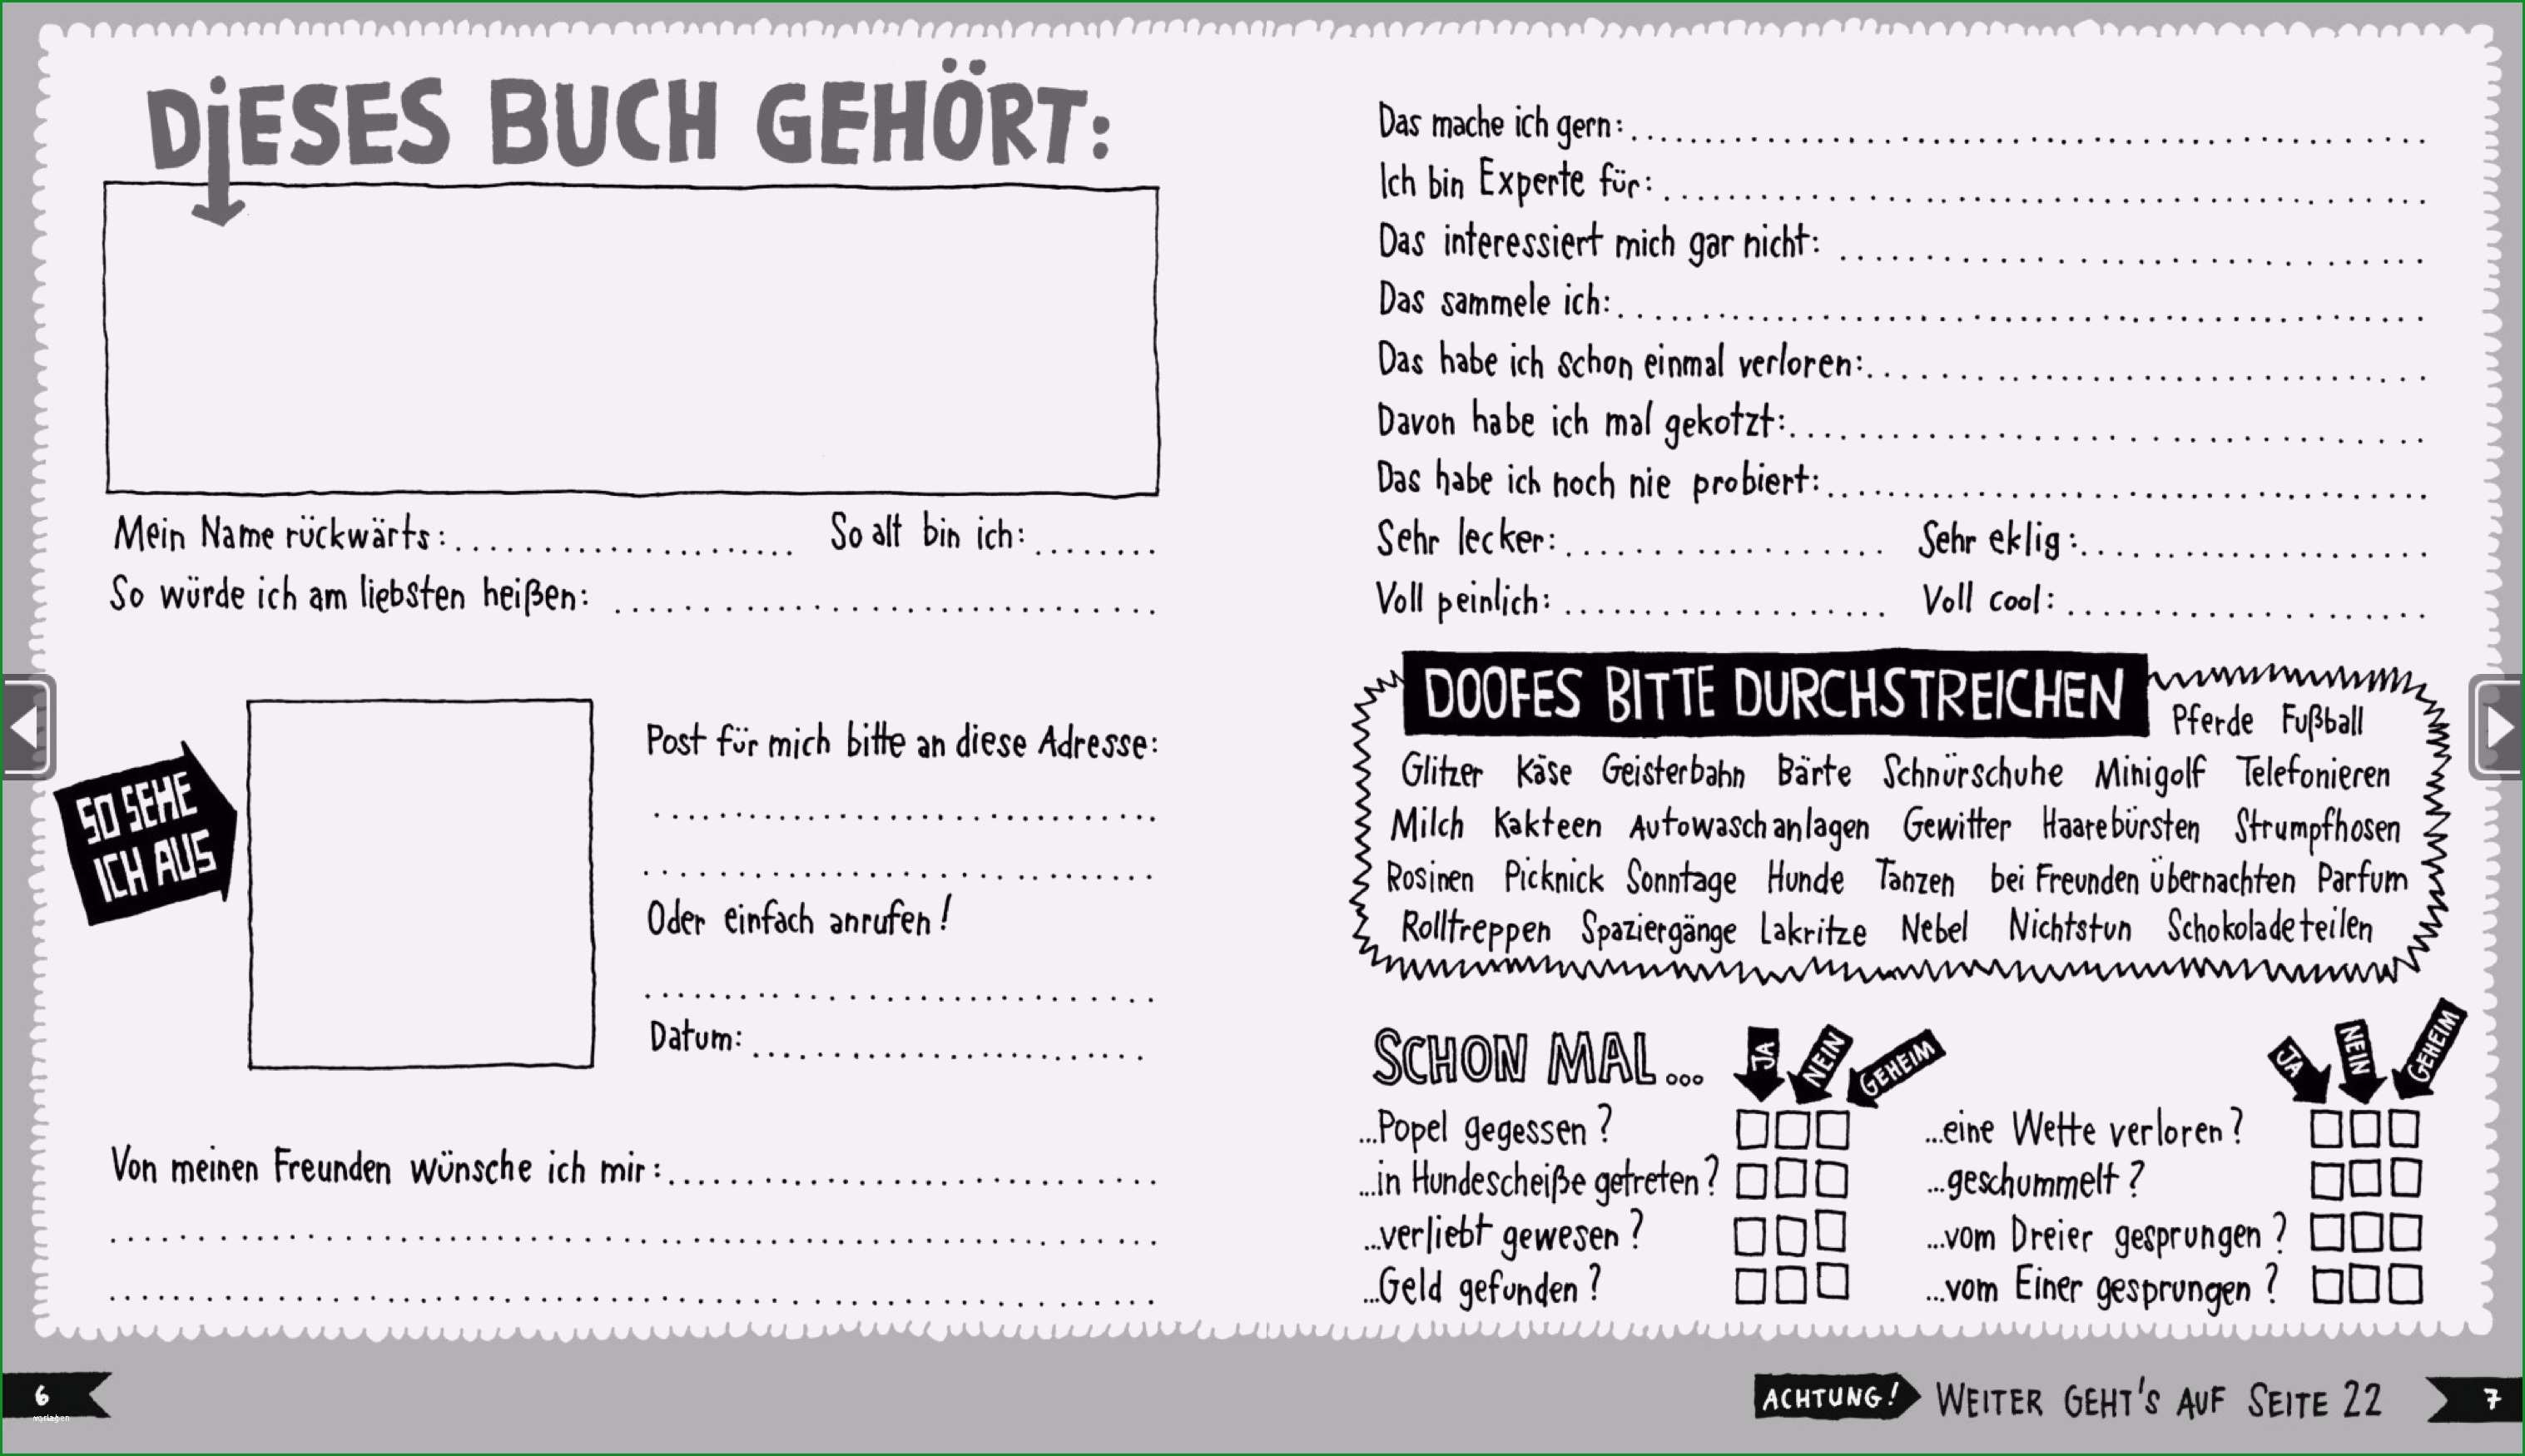 DiESES BUCH GEHÖRT:
Mein Name rückwärts: So alt bin ich:
So würde ich am liebsten heißen:
SO SEHE
ICH AUS
Post für mich bitte an diese Adresse:
Oder einfach anrufen!
Datum:
Von meinen Freunden wünsche ich mir:
6
vorlagen
Das mache ich gern:
Ich bin Experte für:
Das interessiert mich gar nicht:
Das sammele ich:
Das habe ich schon einmal verloren:
Davon habe ich mal gekotzt:
Das habe ich noch nie probiert:
Sehr lecker: Sehr eklig:
Voll peinlich: Voll cool:
DOOFES BITTE DURCHSTREICHEN
Pferde Fußball
Glitzer Käse Geisterbahn Bärte Schnürschuhe Minigolf Telefonieren
Milch Kakteen Autowaschanlagen Gewitter Haarebürsten Strumpfhosen
Rosinen Picknick Sonntage Hunde Tanzen bei Freunden übernachten Parfum
Rolltreppen Spaziergänge Lakritze Nebel Nichtstun Schokoladeteilen
SCHON MAL... JA NEIN GEHEIM JA NEIN GEHEIM
...Popel gegessen? ...eine Wette verloren?
...in Hundescheiße getreten? ...geschummelt?
...verliebt gewesen? ...vom Dreier gesprungen?
...Geld gefunden? ...vom Einer gesprungen?
ACHTUNG! WEITER GEHT'S AUF SEITE 22
7